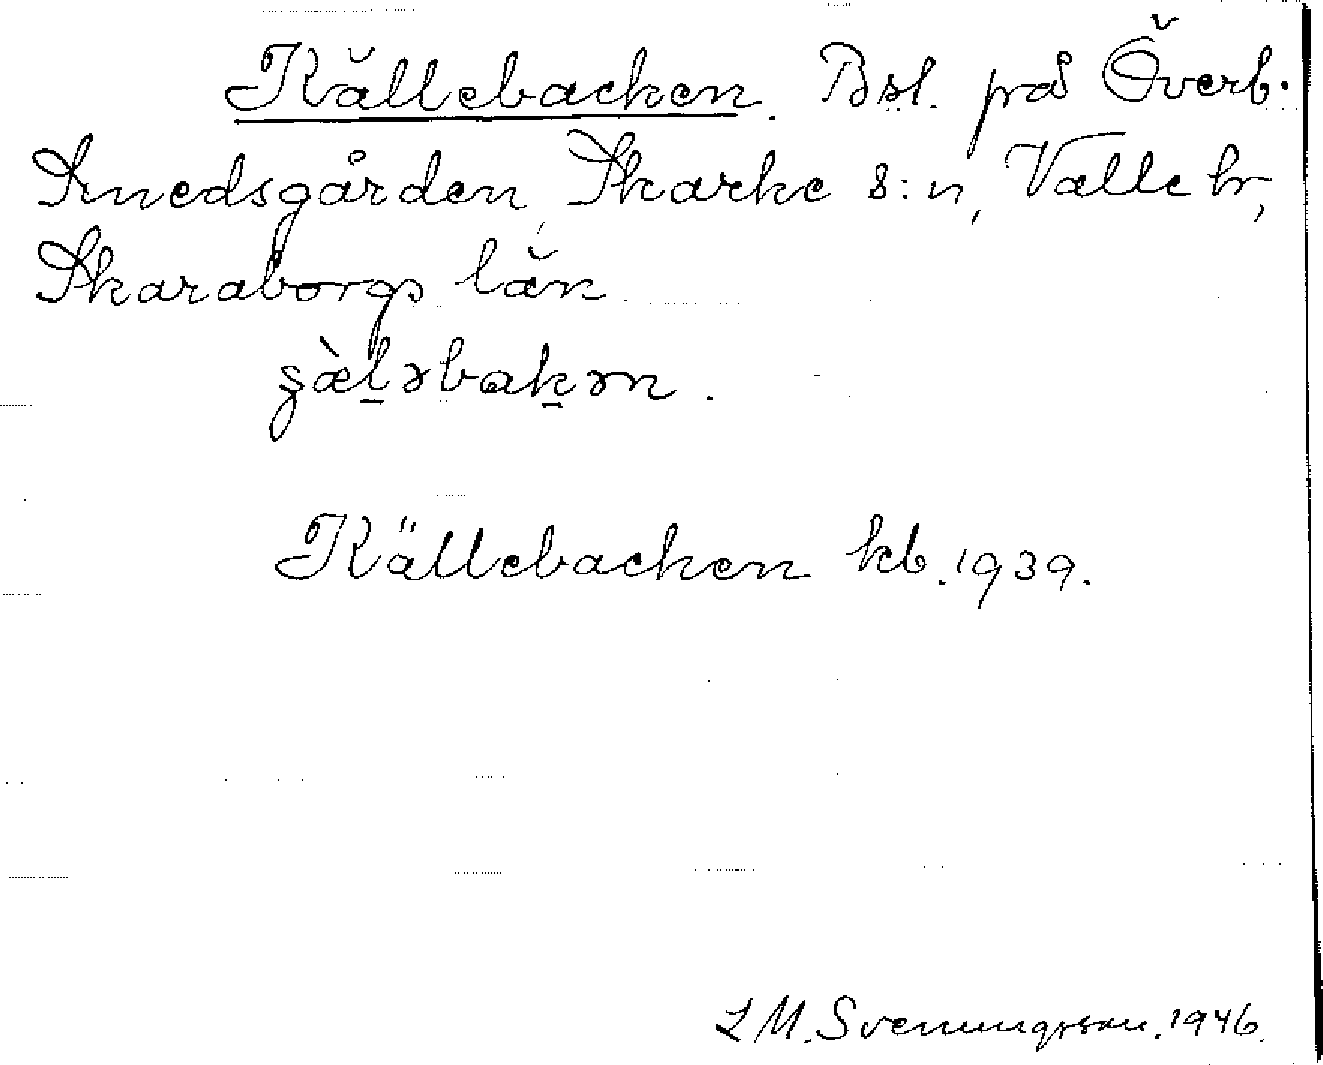 Källebacken. Bsl. på Överb.
Smedsgården, Skarke s:n, Valle hr,
Skaraborgs län
ʂàl̠əbak̠ən.
Källebacken kb. 1939.
L M. Svenungsson. 1946.